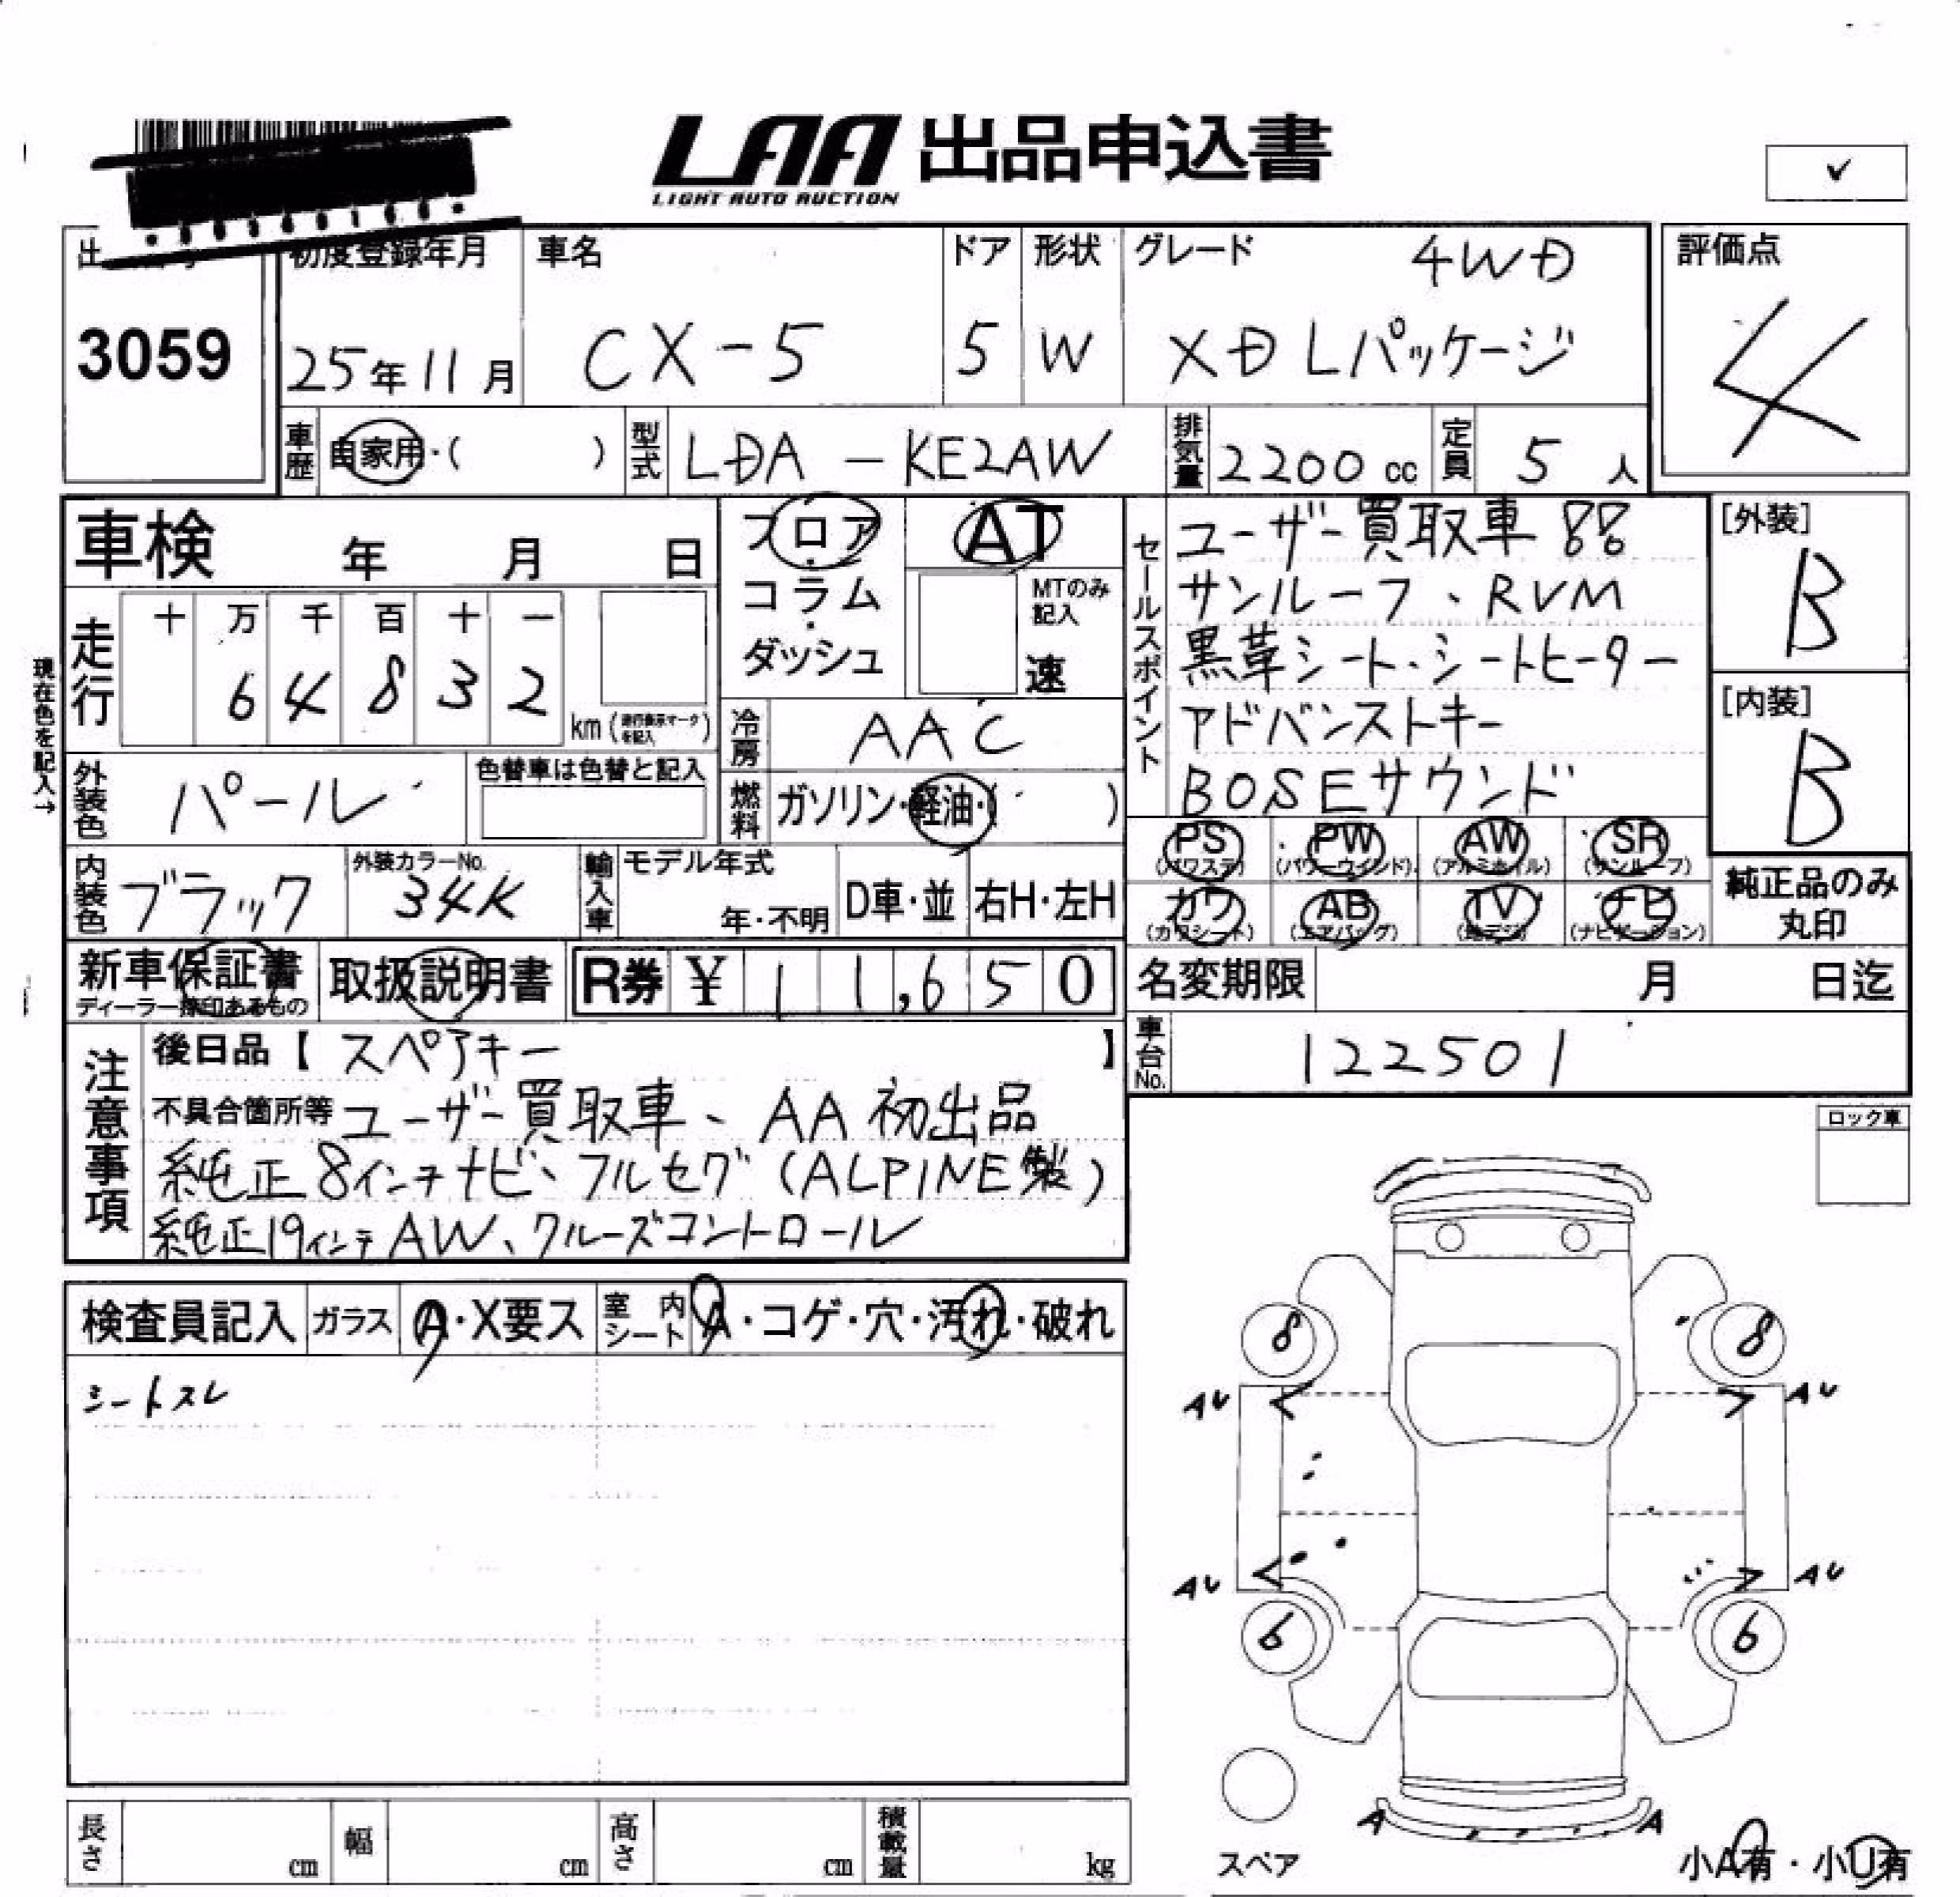 LAA 出品申込書
LIGHT AUTO AUCTION
✓
3059
初度登録年月
25年11月
車名
CX-5
ドア
5
形状
W
グレード 4WD
XD Lパッケージ
評価点
4
車歴 自家用・( )
型式 LDA-KE2AW
排気量 2200cc
定員 5人
車検 年 月 日
フロア・コラム・ダッシュ
AT
MTのみ記入
速
走行
十 万 千 百 十 一
6 4 8 3 2
km
現在色を記入→
冷房 AAC
外装色 パール
色替車は色替と記入
燃料 ガソリン・軽油・( )
内装色 ブラック
外装カラーNo.
34K
輸入車
モデル年式
年・不明
D車・並
右H・左H
セールスポイント
ユーザー買取車
サンルーフ、RVM
黒革シート、シートヒーター
アドバンストキー
BOSEサウンド
[外装]
B
[内装]
B
PS
(パワステ)
PW
(パワーウインド)
AW
(アルミホイル)
SR
(サンルーフ)
カワ
(カワシート)
AB
(エアバッグ)
TV
(地デジ)
ナビ
(ナビゲーション)
純正品のみ
丸印
新車保証書
ディーラー捺印あるもの
取扱説明書
R券 ¥11,650
名変期限 月 日迄
車台No. 122501
注意事項
後日品【スペアキー】
不具合箇所等 ユーザー買取車、AA初出品
純正8インチナビ、フルセグ(ALPINE製)
純正19インチAW、クルーズコントロール
ロック車
検査員記入
ガラス A・X要ス
室内シート A・コゲ・穴・汚れ・破れ
シートスレ
8 8
AU AU
AU AU
6 6
A A
スペア
小A有・小U有
長さ cm
幅 cm
高さ cm
積載量 kg